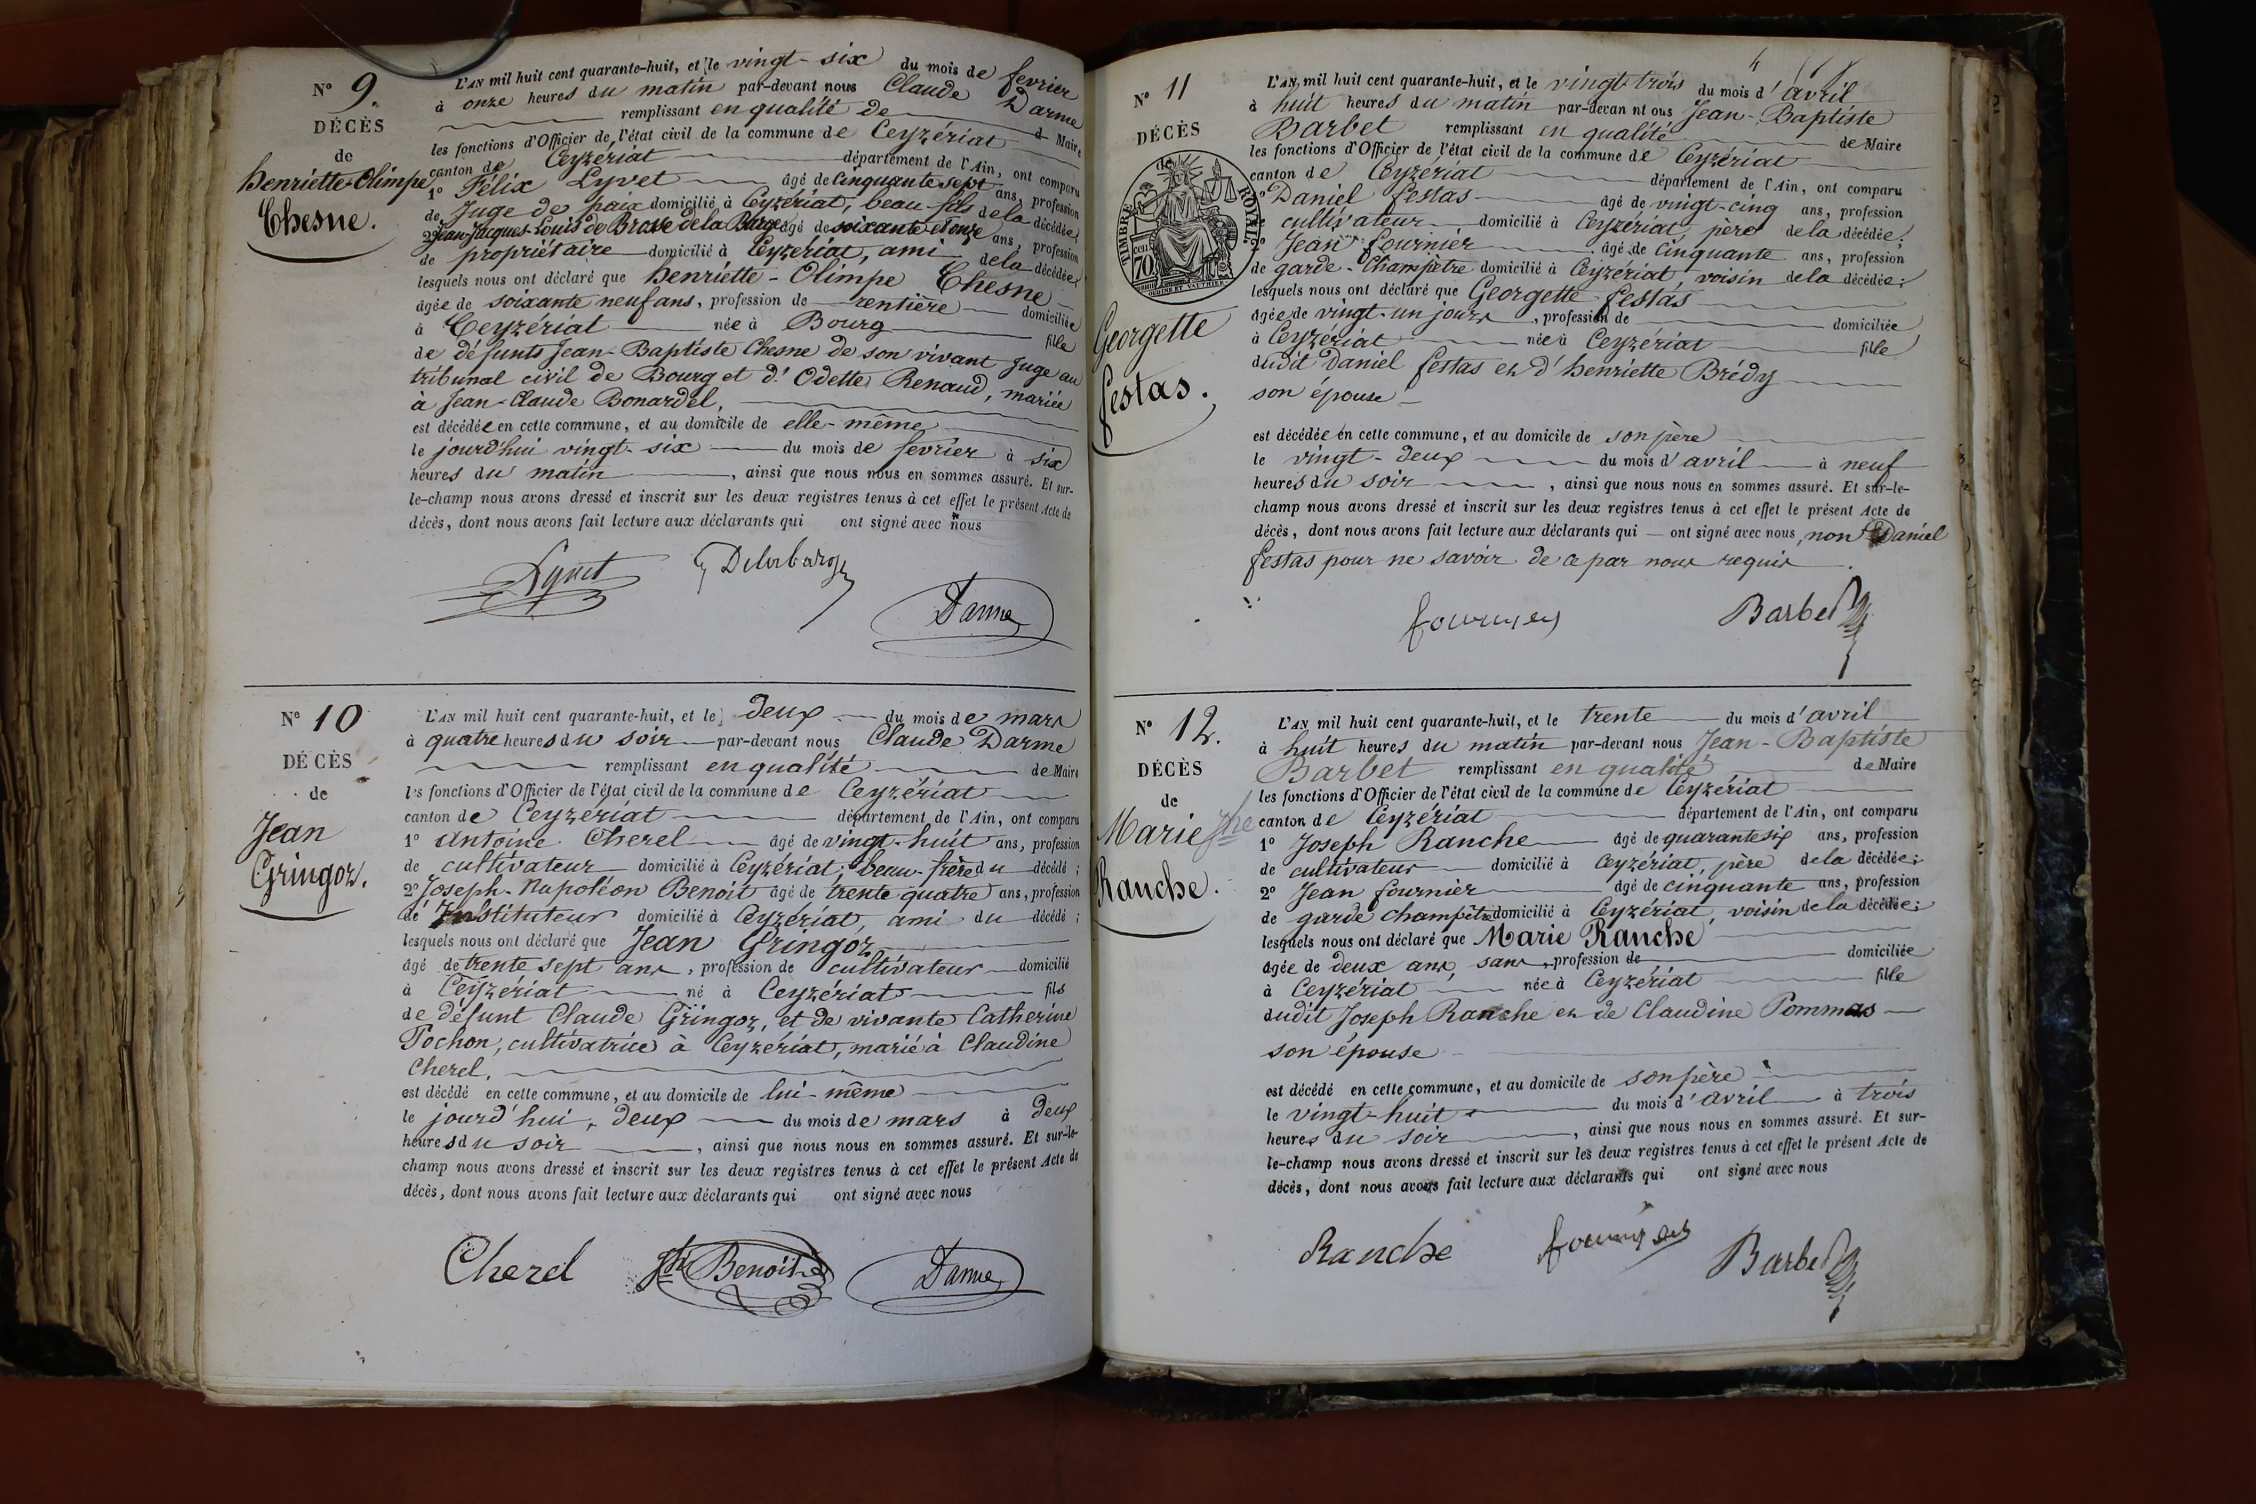 N° 9.
DÉCÈS
de
henriette-Olimpe
Chesne.
L'AN mil huit cent quarante-huit, et le vingt-six du mois de fevrier
à onze heures du matin par-devant nous Claude Darme
remplissant en qualité de d Maire
les fonctions d'Officier de l'état civil de la commune de Ceyzériat
canton de Ceyzériat département de l'Ain, ont comparu
1° Félix Lyvet âgé de cinquante sept ans, profession
de Juge de paix domicilié à Ceyzériat, beau-fils de la décédée;
2° Jean-Jacques-Louis de Brosse de la Barge âgé de soixante et onze ans, profession
de propriétaire domicilié à Ceyzériat, ami de la décédée;
lesquels nous ont déclaré que henriette-Olimpe Chesne
âgée de soixante neuf ans, profession de rentière domiciliée
à Ceyzériat née à Bourg fille
de défunts Jean-Baptiste Chesne de son vivant Juge au
tribunal civil de Bourg et d' Odette Renaud, mariée
à Jean-Claude Bonardel,
est décédée en cette commune, et au domicile de elle-même
le jourd'hui vingt-six du mois de fevrier à six
heures du matin, ainsi que nous nous en sommes assuré. Et sur-
le-champ nous avons dressé et inscrit sur les deux registres tenus à cet effet le présent Acte de
décès, dont nous avons fait lecture aux déclarants qui ont signé avec nous
Delabarge
Darme
N° 10
DÉCÈS
de
Jean
Gringoz.
L'AN mil huit cent quarante-huit, et le deux du mois de mars
à quatre heures du soir par-devant nous Claude Darme
remplissant en qualité de Maire
les fonctions d'Officier de l'état civil de la commune de Ceyzériat
canton de Ceyzériat département de l'Ain, ont comparu
1° Antoine Cherel âgé de vingt-huit ans, profession
de cultivateur domicilié à Ceyzériat, beau-frère du décédé;
2° Joseph-Napoléon Benoit âgé de trente quatre ans, profession
de Instituteur domicilié à Ceyzériat, ami du décédé;
lesquels nous ont déclaré que Jean Gringoz
âgé de trente sept ans, profession de cultivateur domicilié
à Ceyzériat né à Ceyzériat fils
de défunt Claude Gringoz, et de vivante Catherine
Pochon, cultivatrice à Ceyzériat, marié à Claudine
Cherel.
est décédé en cette commune, et au domicile de lui-même
le jourd'hui, deux du mois de mars à deux
heures du soir, ainsi que nous nous en sommes assuré. Et sur-le-
champ nous avons dressé et inscrit sur les deux registres tenus à cet effet le présent Acte de
décès, dont nous avons fait lecture aux déclarants qui ont signé avec nous
Cherel Jh Benoit Darme
4
N° 11
DÉCÈS
de
TIMBRE ROYAL
70
Georgette
festas.
L'AN mil huit cent quarante-huit, et le vingt-trois du mois d'avril
à huit heures du matin par-devan nt ous Jean-Baptiste
Barbet remplissant en qualité de Maire
les fonctions d'Officier de l'état civil de la commune de Ceyzériat
canton de Ceyzériat département de l'Ain, ont comparu
1° Daniel festas âgé de vingt-cinq ans, profession
cultivateur domicilié à Ceyzériat, père de la décédée;
2° Jean fournier âgé de cinquante ans, profession
de garde-Champêtre domicilié à Ceyzériat, voisin de la décédée;
lesquels nous ont déclaré que Georgette festas
âgée de vingt-un jours, profession de domiciliée
à Ceyzériat née à Ceyzériat fille
dudit Daniel festas et d'henriette Brédy
son épouse
est décédée en cette commune, et au domicile de son père
le vingt-deux du mois d'avril à neuf
heures du soir, ainsi que nous nous en sommes assuré. Et sur-le-
champ nous avons dressé et inscrit sur les deux registres tenus à cet effet le présent Acte de
décès, dont nous avons fait lecture aux déclarants qui ont signé avec nous, non Daniel
festas pour ne savoir de ce par nous requis.
fournier Barbet
N° 12.
DÉCÈS
de
Marie Jhe
Ranche.
L'AN mil huit cent quarante-huit, et le trente du mois d'avril
à huit heures du matin par-devant nous Jean-Baptiste
Barbet remplissant en qualité de Maire
les fonctions d'Officier de l'état civil de la commune de Ceyzériat
canton de Ceyzériat département de l'Ain, ont comparu
1° Joseph Ranche âgé de quarante six ans, profession
de cultivateur domicilié à Ceyzériat, père de la décédée;
2° Jean fournier âgé de cinquante ans, profession
de garde champêtre domicilié à Ceyzériat, voisin de la décédée;
lesquels nous ont déclaré que Marie Ranche
âgée de deux ans, sans, profession de domiciliée
à Ceyzériat née à Ceyzériat fille
dudit Joseph Ranche et de Claudine Pommas
son épouse
est décédé en cette commune, et au domicile de son père
le vingt-huit du mois d'avril à trois
heures du soir, ainsi que nous nous en sommes assuré. Et sur-
le-champ nous avons dressé et inscrit sur les deux registres tenus à cet effet le présent Acte de
décès, dont nous avons fait lecture aux déclarants qui ont signé avec nous
Ranche fournier Barbet